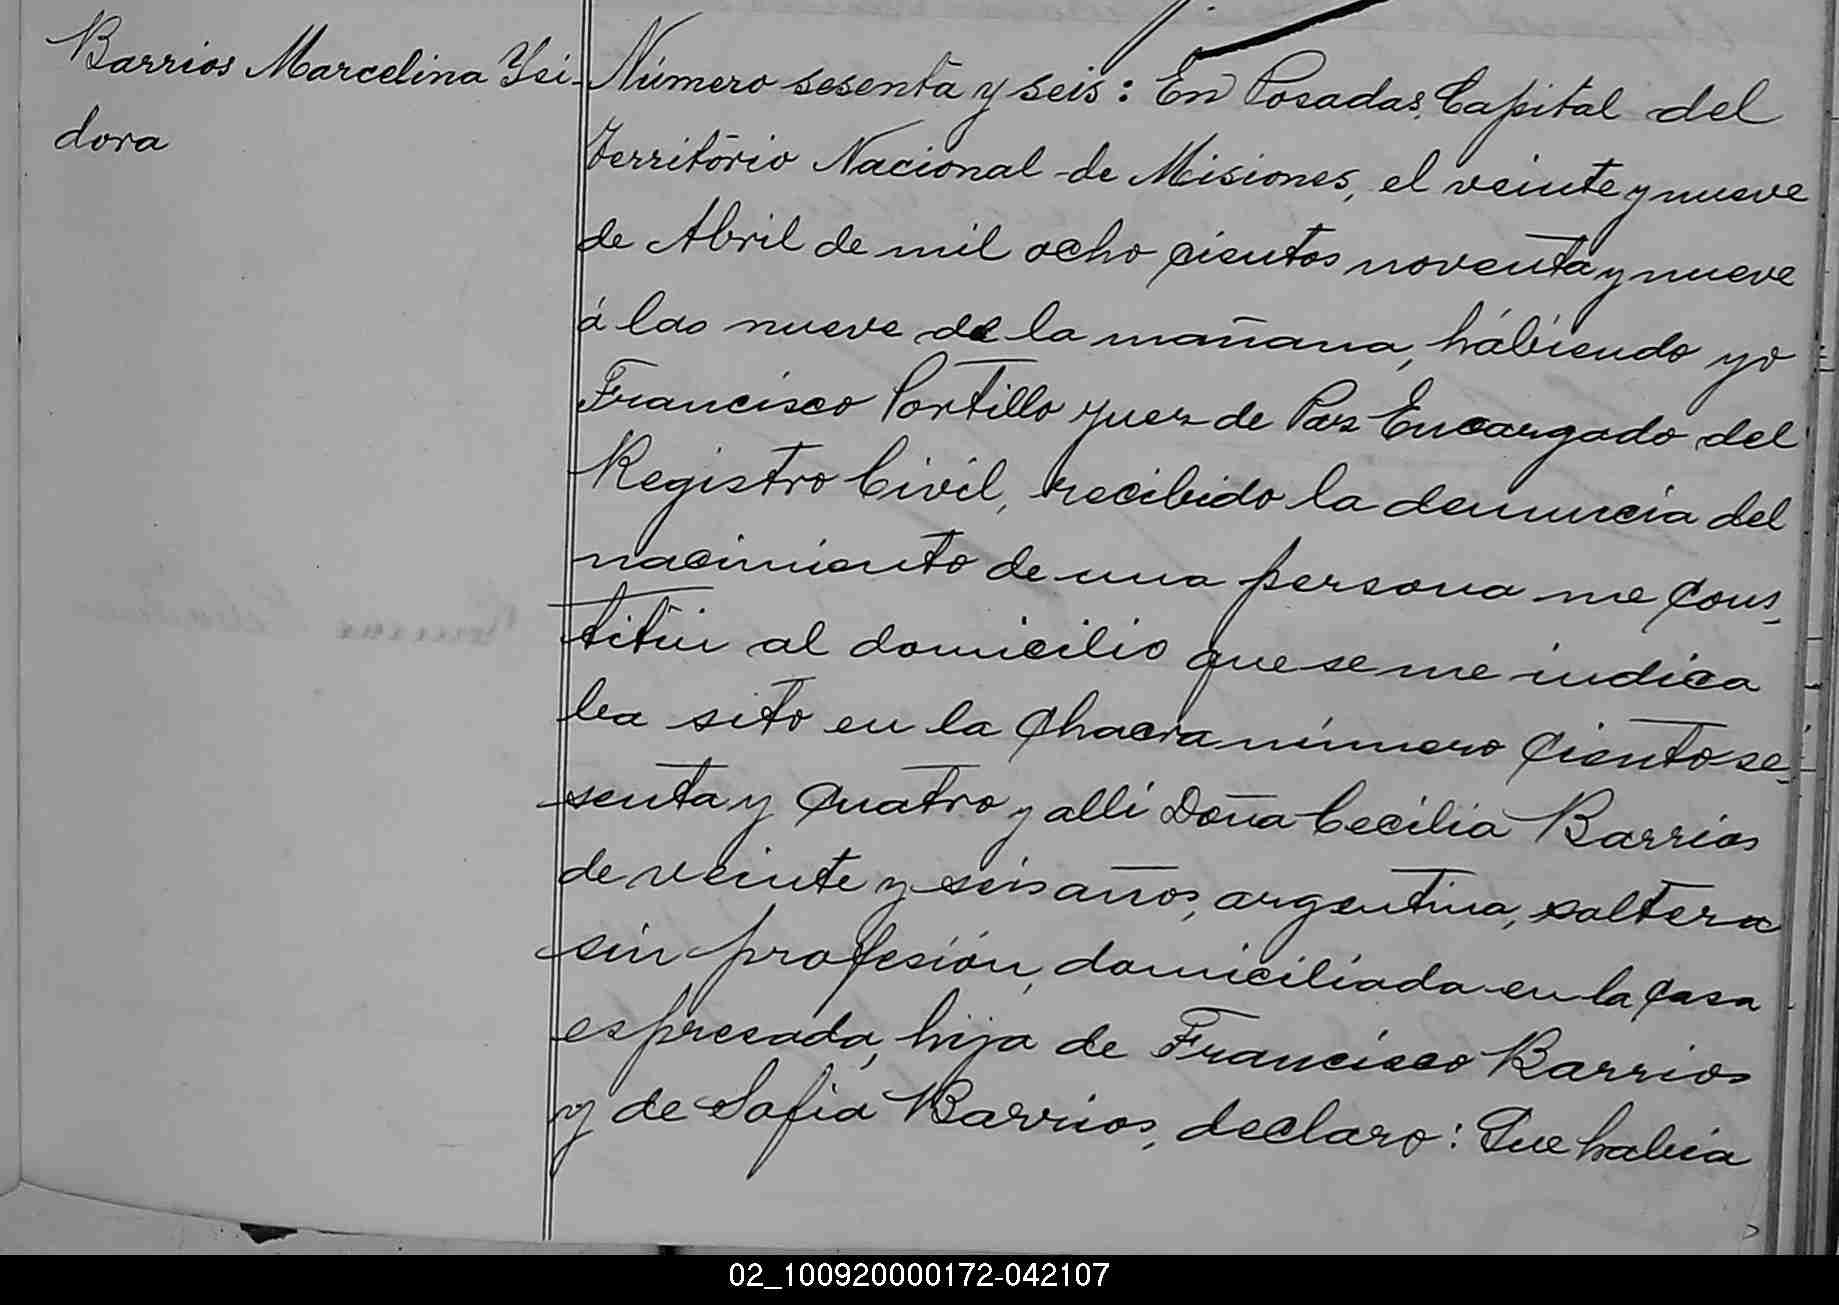 Barrios Marcelina Ysi-
dora
Número sesenta y seis: En Posadas, Capital del
Territorio Nacional de Misiones, el veinte y nueve
de Abril de mil ocho cientos noventa y nueve
á las nueve de la mañana, habiendo yo
Francisco Portillo Juez de Paz Encargado del
Registro Civil, recibido la denuncia del
nacimiento de una persona me cons-
tituí al domicilio que se me indica
ba sito en la chacra número ciento se-
senta y cuatro y alli Doña Cecilia Barrios
de veinte y seis años, argentina, soltera
sin profesión, domiciliada en la casa
espresada, hija de Francisco Barrios
y de Sofia Barrios, declaro: Que habia
02_100920000172-042107